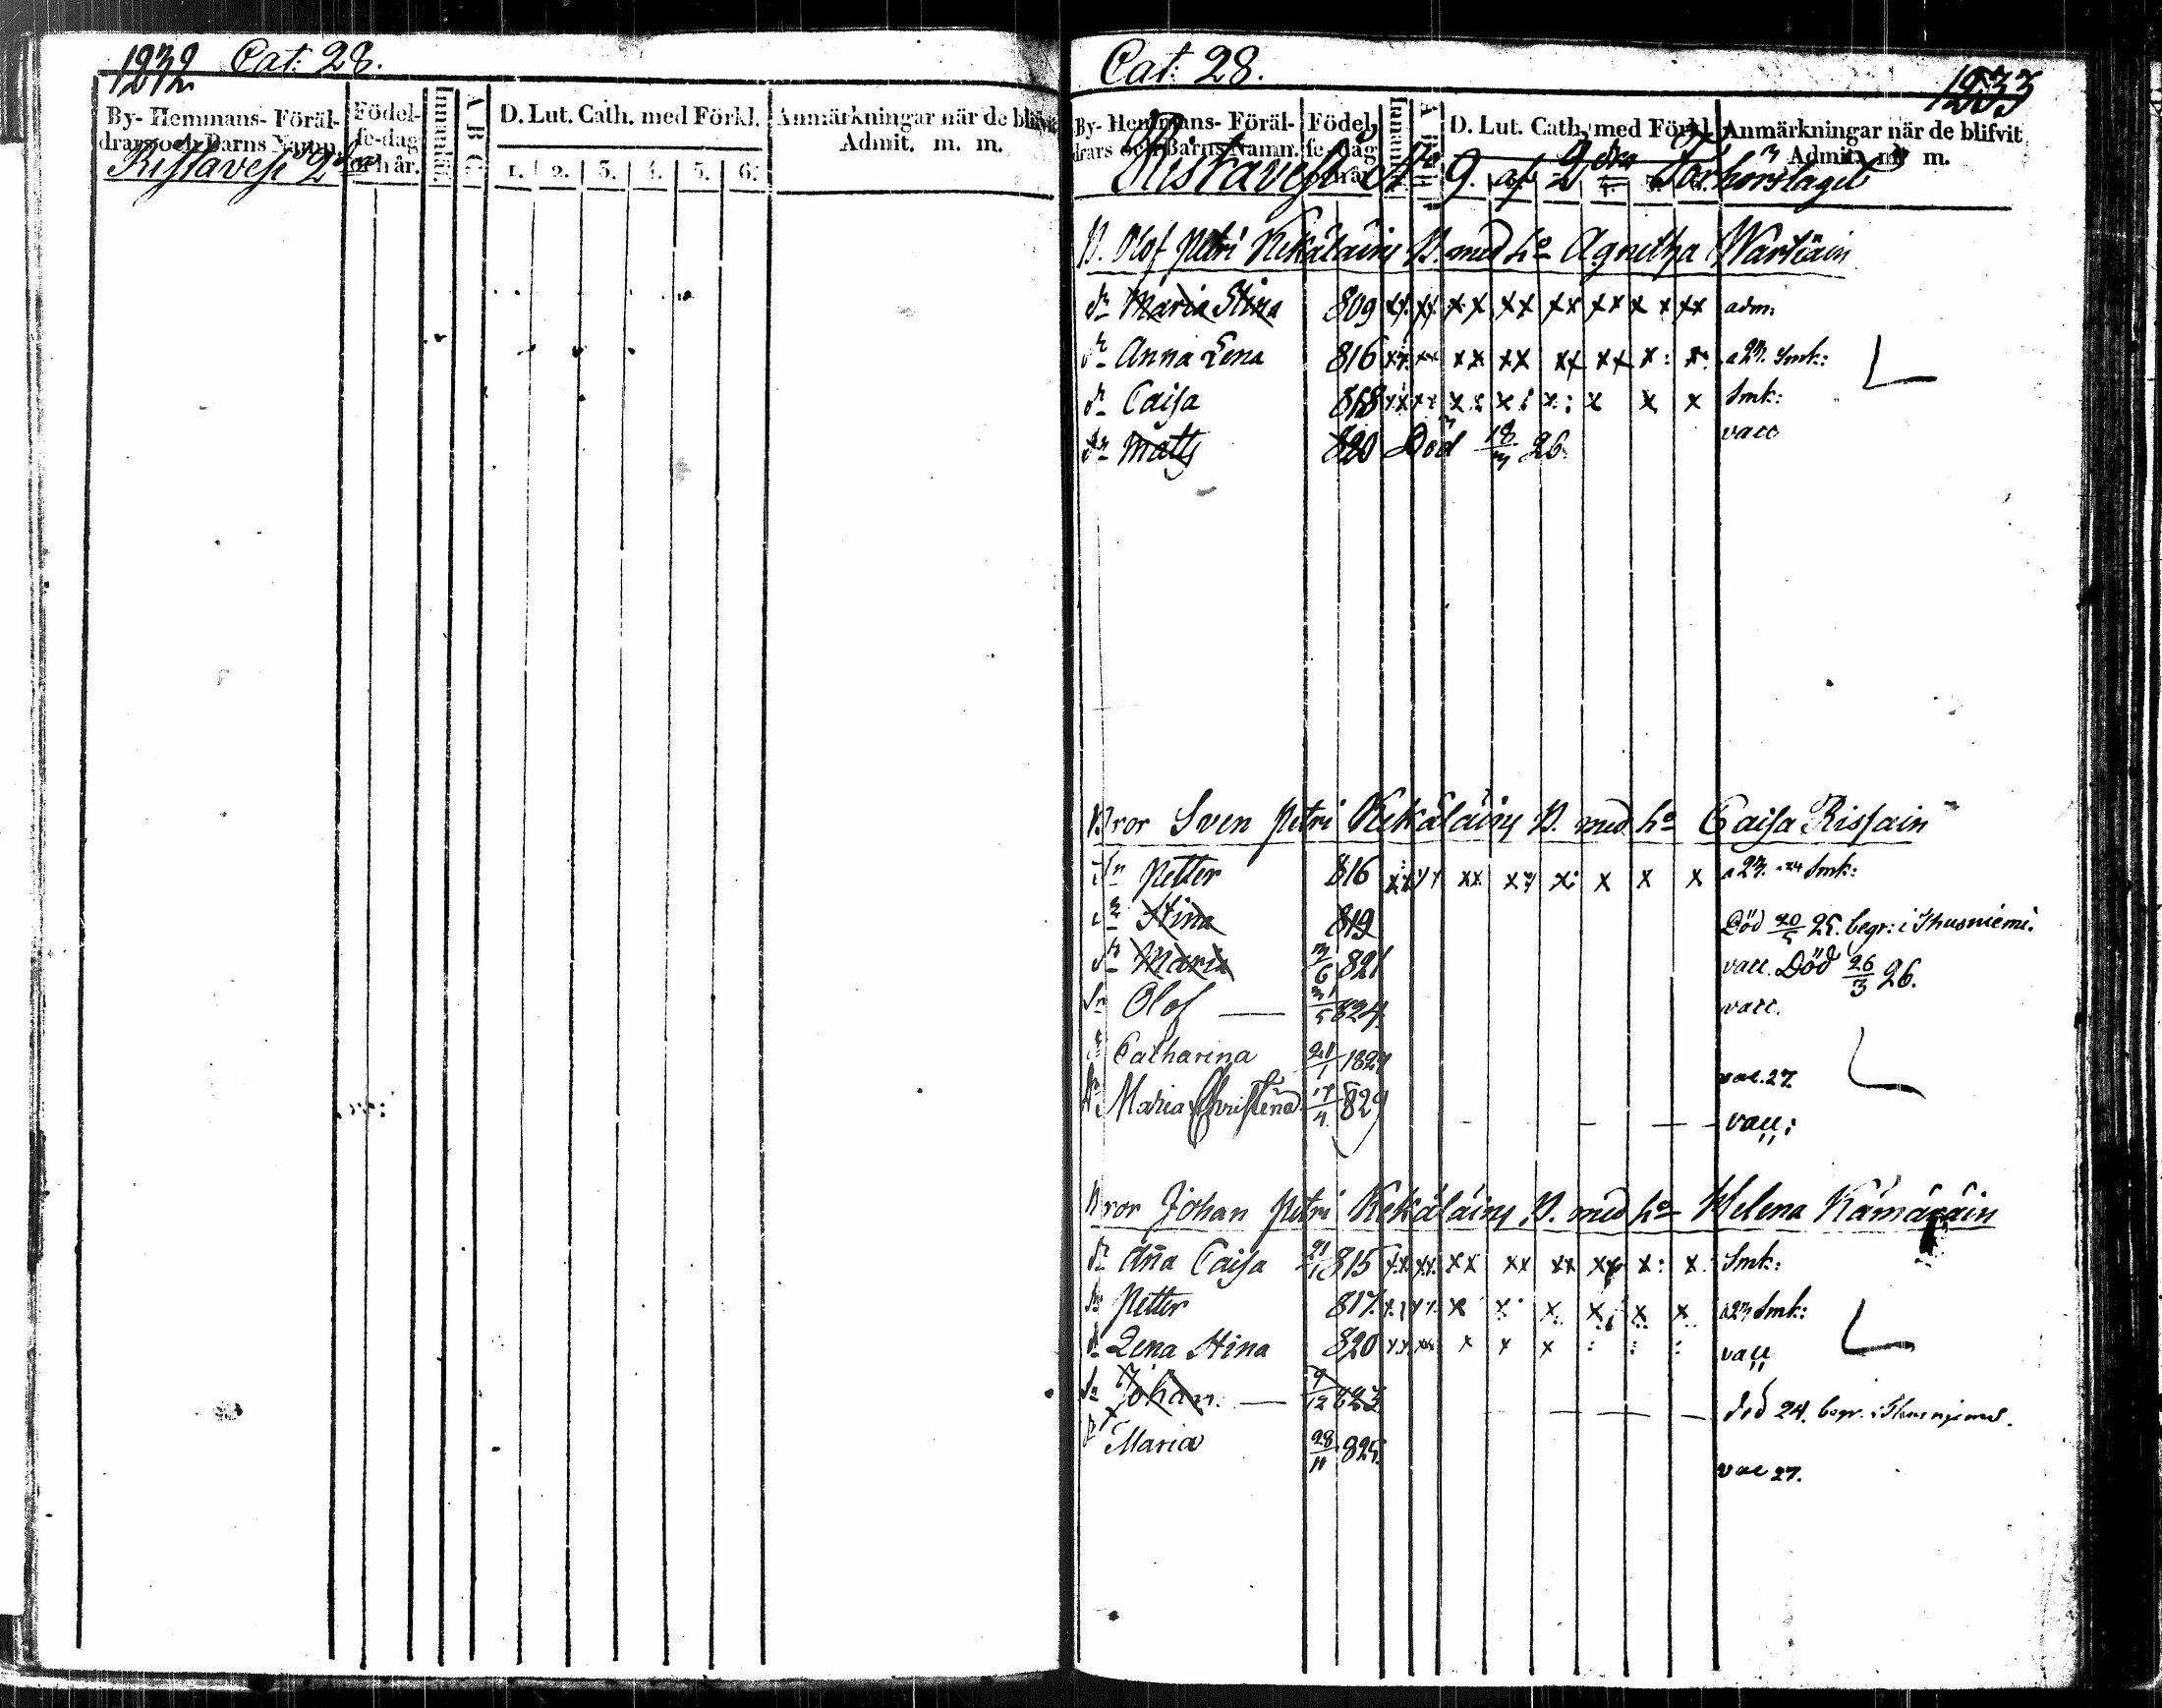 1232 Cat: 28.
By- Hemmans- Föräl-
drars och Barns Namn.
Födel-
se-dag
och år.
Innanläs
A B C
D. Lut. Cath. med Förkl.
1. 2. 3. 4. 5. 6.
Anmärkningar när de blifvit
Admit. m. m.
Ristavesi 2dra
Cat: 28. 1233
By- Hemmans- Föräl-
drars och Barns Namn.
Födel-
se-dag
och år
D. Lut. Cath. med Förkl.
Anmärkningar när de blifvit
Admit. m. m.
Ristavesi No 9. af 2dra Förhörslaget
B. Olof Petri Kekäläin B. med ho Agnetha Wartiain
dr Maria Stina 809 xx xx xx xx xx xx x x xx adm:
dr Anna Lena 816 xx xx xx xx xx xx x: x. a 27. Smk:
dr Caisa 818 xx xx x: x: x: x x x Smk:
Sn Matts 820 Död 18/3 26. vacc
Bror Sven Petri Kekäläin B. med ho Caisa Rissain
Sn Petter 816 xx xx xx x: x x x Smk:
dr Stina 819 Död 20/5 25. begr: i Thusniemi.
dr Maria 3/6 821 vacc. Död 26/3 26.
Sn Olof — 31/5 824. vacc.
dr Catharina 21/1 1827 vac. 27
Dr Maria Christina 17/4 829 vacc:
Bror Johan Petri Kekäläin B. med ho Helena Kämäräin
dr Ana Caisa 21/1 815 xx xx xx xx xx xx x: x. Smk:
Sn Petter 817. x x x x x x Smk:
dr Lena Stina 820 xx xx x x x : : : vacc
Sn Johan. — 9/12 823. död 24. begr. i Thusniemi.
dr Maria 28/11 825. vac 27.